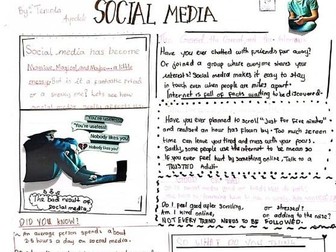 By: Teninda
SOCIAL MEDIA
Social media has become
Narrative, Magical, and Maybe a little
messy. But is it a fantastic friend
or a sneaky one? Lets see how
You're useless!
You're useless!
Nobody likes you!
Nobody likes you!
The bad result of
social media.
DID YOU KNOW?
An average person spends about
2.5 hours a day on social media.
Have you ever chatted with friends far away?
Or joined a group where everyone shares your
interests? Social media makes it easy to stay
in touch even when people are miles apart!
Internet is full of facts waiting to be discovered.
Have you ever planned to scroll "Just for five minutes"
and realised an hour has flown by? Too much screen
time can leave you tired and mess with your posts.
Sadly, some people use the internet to be mean so
if you ever feel hurt by something online, Talk to a
TRUSTED Adult.
Do I feel good after scrolling, or stressed?
Am I kind online, or adding to the noise?
NOT EVERY TREND NEEDS TO BE FOLLOWED.